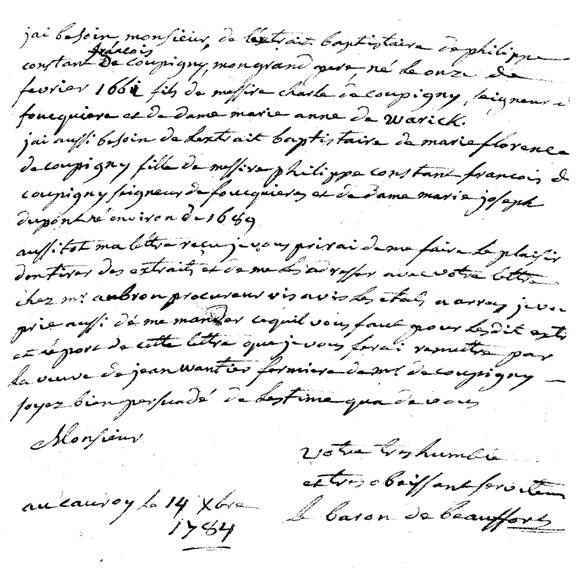 jai besoin monsieur, de lextrait baptistaire de philippe
constant françois De coupigny, mon grand pere, né le onze de
fevrier 1661 fils de messire charle de coupigny, seigneur d
foucquiere et de dame marie anne de warick.
jai aussi besoin de lextrait baptistaire de marie florence
de coupigny fille de messire philippe constant francois d
coupigny seigneur de foucquieres et de dame marie joseph
dupont né environ de 1689
aussitot ma lettre reçu je vous prirai de me faire le plaisir
den tirer des extraits et de me les adresser avec votre lettre
chez mr aubron procureur vis avis les etats a arras, je vou
prie aussi de me mander ce quil vous faut pour les dit extr
et le port de cette lettre que je vous ferai remettre par
la veuve de jean wantier fermiere de mr de coupigny —
soyez bien persuadé de lestime qua de vous
Monsieur
votre tres humble
et tres obeissant serviteur
au cauroy le 14 Xbre
1784
le baron de beauffort